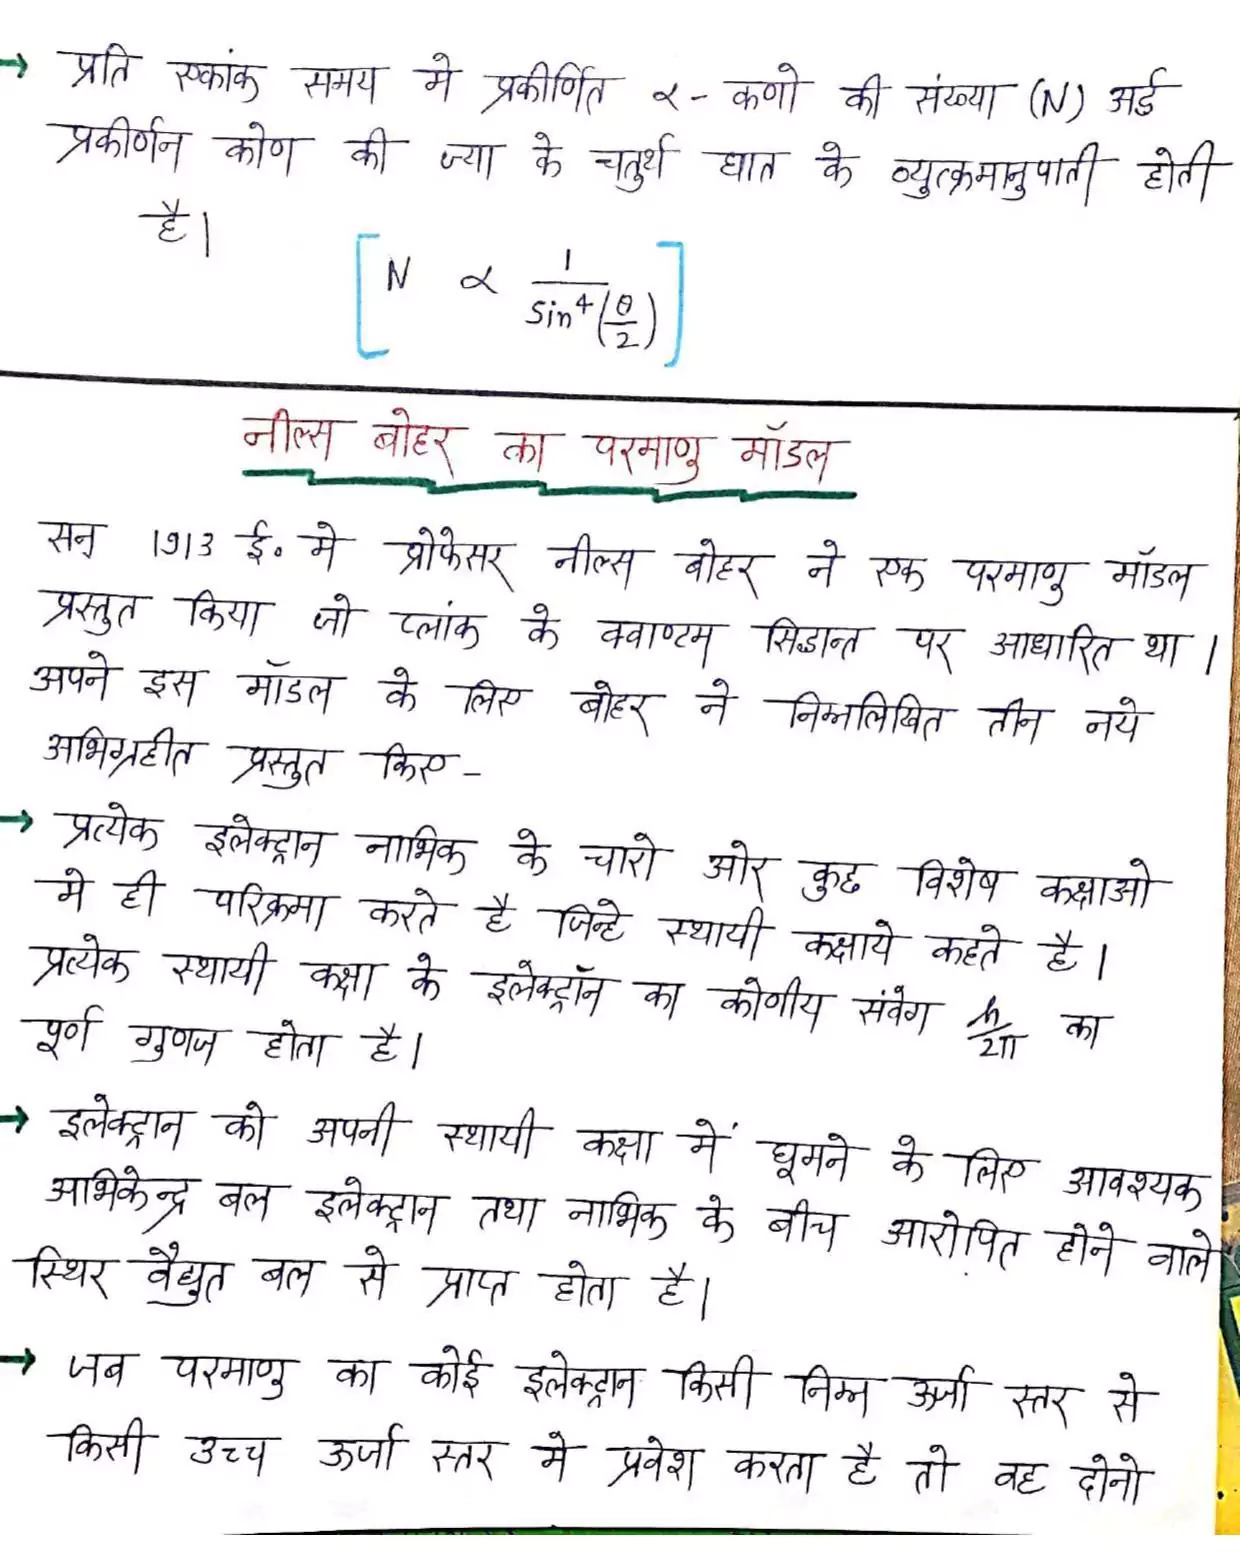 → प्रति एकांक समय मे प्रकीर्णित α - कणो की संख्या (N) अर्द्ध
प्रकीर्णन कोण की ज्या के चतुर्थ घात के व्युत्क्रमानुपाती होती
है।
[N ∝ 1/sin⁴(θ/2)]
नील्स बोहर का परमाणु मॉडल
सन् 1913 ई० मे प्रोफेसर नील्स बोहर ने एक परमाणु मॉडल
प्रस्तुत किया जो प्लांक के क्वाण्टम सिद्धान्त पर आधारित था।
अपने इस मॉडल के लिए बोहर ने निम्नलिखित तीन नये
अभिग्रहीत प्रस्तुत किए -
→ प्रत्येक इलेक्ट्रान नाभिक के चारो ओर कुछ विशेष कक्षाओ
मे ही परिक्रमा करते है जिन्हे स्थायी कक्षाये कहते है।
प्रत्येक स्थायी कक्षा के इलेक्ट्रॉन का कोणीय संवेग h/2π का
पूर्ण गुणज होता है।
→ इलेक्ट्रान को अपनी स्थायी कक्षा में घूमने के लिए आवश्यक
अभिकेन्द्र बल इलेक्ट्रान तथा नाभिक के बीच आरोपित होने वाले
स्थिर वैद्युत बल से प्राप्त होता है।
→ जब परमाणु का कोई इलेक्ट्रान किसी निम्न ऊर्जा स्तर से
किसी उच्च ऊर्जा स्तर मे प्रवेश करता है तो वह दोनो